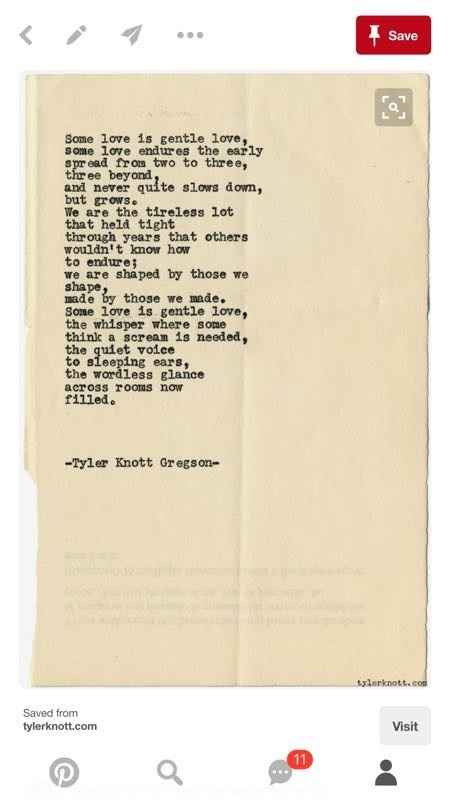 Save
Some love is gentle love,
some love endures the early
spread from two to three,
three beyond,
and never quite slows down,
but grows.
We are the tireless lot
that held tight
through years that others
wouldn't know how
to endure;
we are shaped by those we
shape,
made by those we made.
Some love is gentle love,
the whisper where some
think a scream is needed,
the quiet voice
to sleeping ears,
the wordless glance
across rooms now
filled.
-Tyler Knott Gregson-
tylerknott.com
Saved from
tylerknott.com
Visit
11